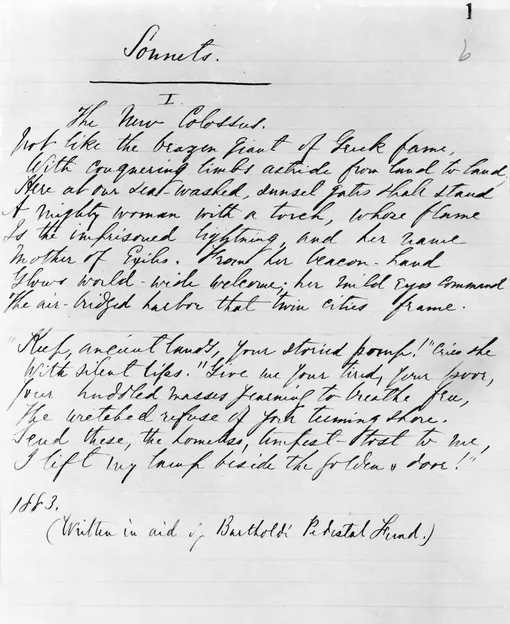 1
6
Sonnets.
I.
The New Colossus.
Not like the brazen giant of Greek fame,
With conquering limbs astride from land to land;
Here at our sea-washed, sunset gates shall stand
A mighty woman with a torch, whose flame
Is the imprisoned lightning, and her name
Mother of Exiles. From her beacon-hand
Glows world-wide welcome; her mild eyes command
The air-bridged harbor that twin cities frame.
"Keep, ancient lands, your storied pomp!" cries she
With silent lips. "Give me your tired, your poor,
Your huddled masses yearning to breathe free,
The wretched refuse of your teeming shore.
Send these, the homeless, tempest-tost to me,
I lift my lamp beside the golden door!"
1883.
(Written in aid of Bartholdi Pedestal Fund.)